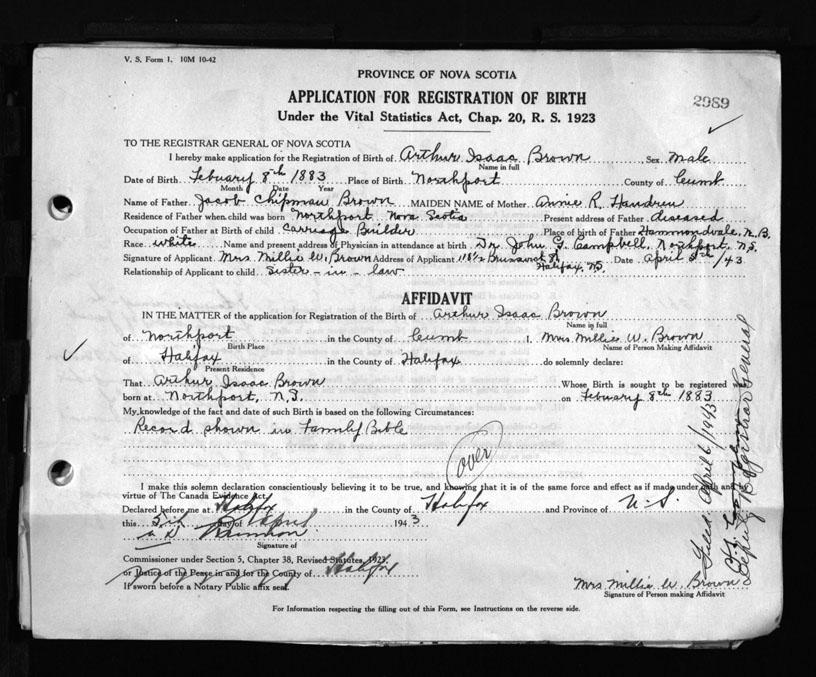 V. S. Form 1. 10M 10-42
PROVINCE OF NOVA SCOTIA
APPLICATION FOR REGISTRATION OF BIRTH
2989
Under the Vital Statistics Act, Chap. 20, R. S. 1923
TO THE REGISTRAR GENERAL OF NOVA SCOTIA
I hereby make application for the Registration of Birth of Arthur Isaac Brown Sex Male
Name in full
Date of Birth Febuary 8th 1883 Place of Birth Northport County of Cumb
Month Date Year
Name of Father Jacob Chipman Brown MAIDEN NAME of Mother Annie R.
Residence of Father when child was born Northport Nova Scotia Present address of Father diseased
Occupation of Father at Birth of child Carriage Builder Place of birth of Father Hammondvale, N.B.
Race white Name and present address of Physician in attendance at birth Dr. John G. Campbell, Northport, N.S.
Signature of Applicant Mrs Millie W. Brown Address of Applicant 118½ Brunswick St Halifax, N.S. Date April 5th /43
Relationship of Applicant to child Sister-in-law
AFFIDAVIT
IN THE MATTER of the application for Registration of the Birth of Arthur Isaac Brown
Name in full
of Northport in the County of Cumb I, Mrs Millie W. Brown
Birth Place Name of Person Making Affidavit
of Halifax in the County of Halifax do solemnly declare:
Present Residence
That Arthur Isaac Brown Whose Birth is sought to be registered w
born at Northport, N.S. on Febuary 8th 1883
My knowledge of the fact and date of such Birth is based on the following Circumstances:
Record shown in Family Bible
over
I make this solemn declaration conscientiously believing it to be true, and knowing that it is of the same force and effect as if made under oath and
virtue of The Canada Evidence Act.
Declared before me at Halifax in the County of Halifax and Province of N.S.
this 5th day of April 1943
Signature of
Commissioner under Section 5, Chapter 38, Revised Statutes, 1923,
or Justice of the Peace in and for the County of Halifax
If sworn before a Notary Public affix seal.
Mrs Millie W. Brown
Signature of Person making Affidavit
For Information respecting the filling out of this Form, see Instructions on the reverse side.
Filed April 6/1943
Deputy Registrar General